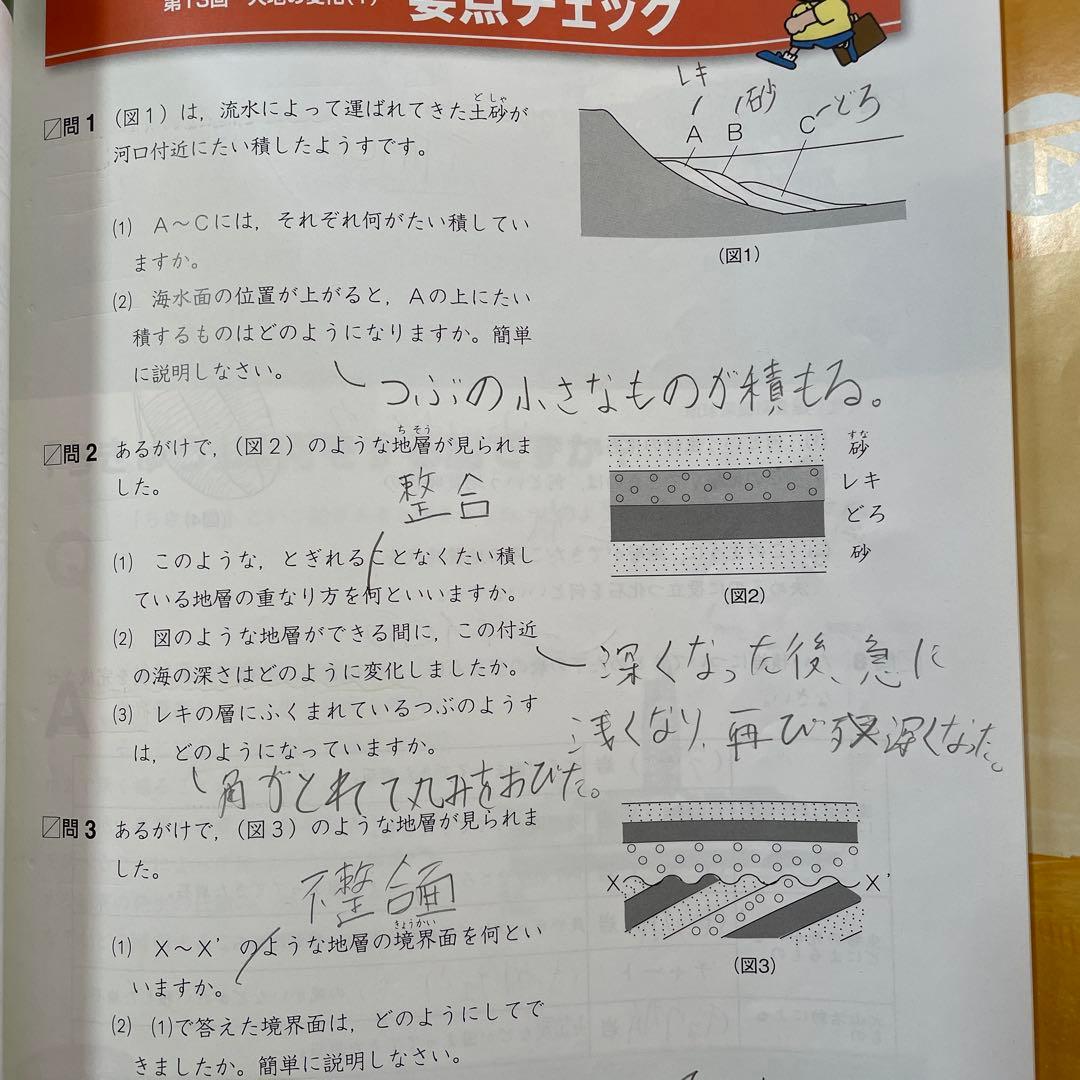 要点チェック
レキ
砂
どろ
A
B
C
問1
(図1)は，流水によって運ばれてきた土砂が
どしゃ
河口付近にたい積したようすです。
(1) A～Cには，それぞれ何がたい積してい
ますか。
(図1)
(2) 海水面の位置が上がると，Aの上にたい
積するものはどのようになりますか。簡単
に説明しなさい。
つぶの小さなものが積もる。
問2
あるがけで，(図2)のような地層が見られま
ちそう
した。
整合
砂
すな
レキ
どろ
砂
(図2)
(1) このような，とぎれることなくたい積し
ている地層の重なり方を何といいますか。
(2) 図のような地層ができる間に，この付近
の海の深さはどのように変化しましたか。
深くなった後、急に
浅くなり、再び深くなった。
(3) レキの層にふくまれているつぶのようす
は，どのようになっていますか。
角がとれて丸みをおびた。
問3
あるがけで，(図3)のような地層が見られま
した。
不整合面
X
X'
(図3)
(1) X～X'のような地層の境界面を何とい
きょうかい
いますか。
(2) (1)で答えた境界面は，どのようにしてで
きましたか。簡単に説明しなさい。